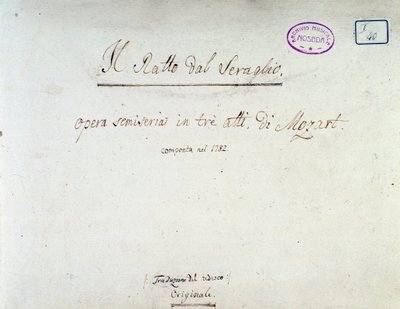 ARCHIVIO MUSICALE
NOSEDA
I
40
Il Ratto dal Seraglio.
opera semiseria in trè atti. di Mozart.
composta nel 1782
(: Traduzione dal tedesco :)
Originale.